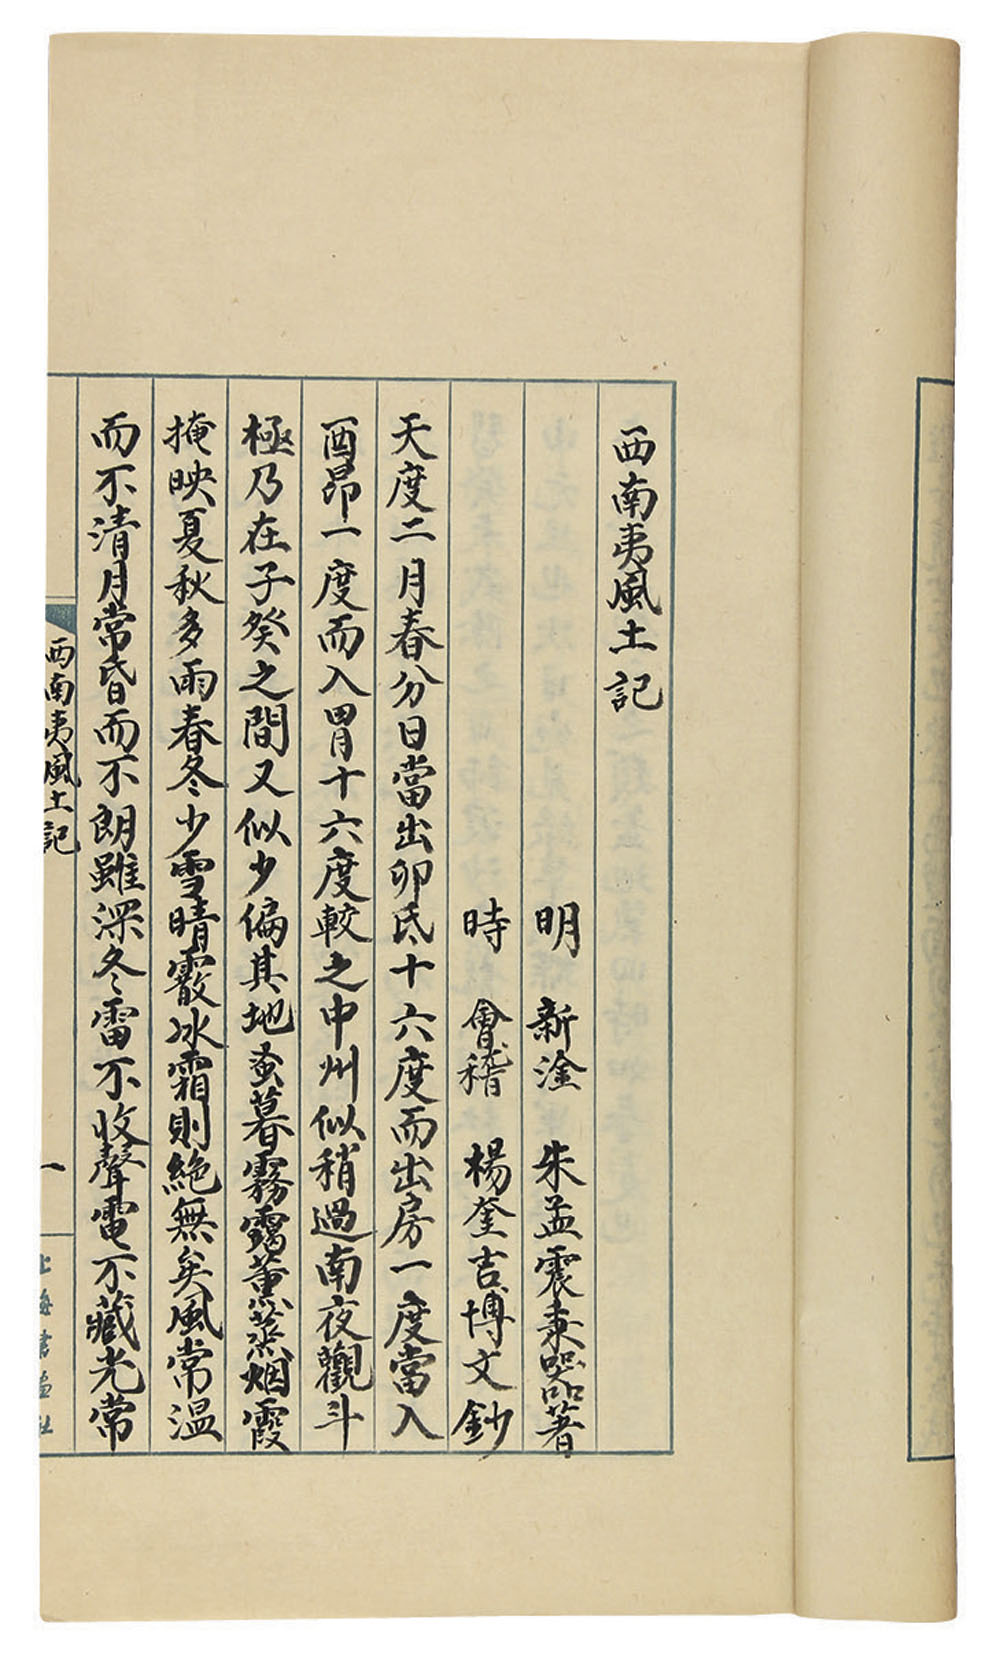 西南夷風土記
明 新淦 朱孟震秉器著
時 會稽 楊奎吉博文鈔
天度二月春分日當出卯氐十六度而出房一度當入
酉昴一度而入胃十六度較之中州似稍過南夜觀斗
極乃在子癸之間又似少偏其地蚤暮霧靄薰蒸烟霞
掩映夏秋多雨春冬少雪晴霰冰霜則絕無矣風常溫
而不清月常昏而不朗雖深冬雷不收聲電不藏光常
西南夷風土記
一